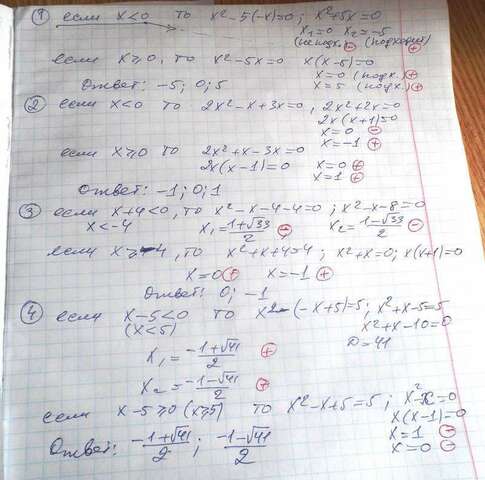 ① если x<0 то x²-5(-x)=0; x²+5x=0
x₁=0 x₂=-5
(не подх.) ⊖ (подходит) ⊕
если x≥0, то x²-5x=0 x(x-5)=0
x=0 (подх.) ⊕
x=5 (подх.) ⊕
Ответ: -5; 0; 5
② если x<0 то 2x²-x+3x=0, 2x²+2x=0
2x(x+1)=0
x=0 ⊖
x=-1 ⊕
если x≥0 то 2x²+x-3x=0
2x(x-1)=0 x=0 ⊕
x=1 ⊕
Ответ: -1; 0; 1
③ если x+4<0, то x²-x-4-4=0; x²-x-8=0
x<-4 x₁=(1+√33)/2 ⊖ x₂=(1-√33)/2 ⊖
если x≥-4, то x²+x+4=4; x²+x=0; x(x+1)=0
x=0 ⊕ x=-1 ⊕
Ответ: 0; -1
④ если x-5<0 то x²-(-x+5)=5; x²+x-5=5
(x<5) x²+x-10=0
D=41
x₁=(-1+√41)/2 ⊕
x₂=(-1-√41)/2 ⊕
если x-5≥0 (x≥5) то x²-x+5=5; x²-x=0
x(x-1)=0
x=1 ⊖
x=0 ⊖
Ответ: (-1+√41)/2; (-1-√41)/2